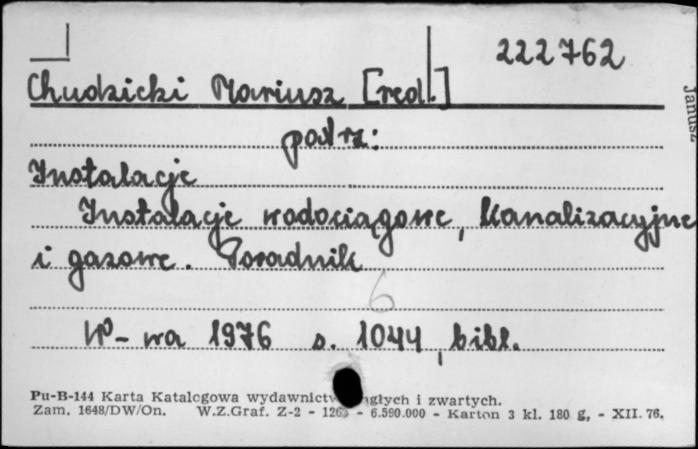 222762
Chudzicki Mariusz [red.]
patrz:
Instalacje
Instalacje wodociągowe, kanalizacyjne
i gazowe. Poradnik
6
W-wa 1976 s. 1044, bibl.
Pu-B-144 Karta Katalogowa wydawnictw ciągłych i zwartych.
Zam. 1648/DW/On. W.Z.Graf. Z-2 - - 6.590.000 - Karton 3 kl. 180 g, - XII. 76.
Janusz